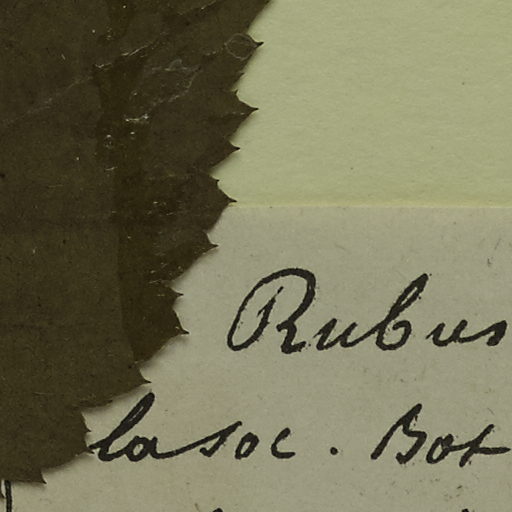 Rubus
lasoc. Bot